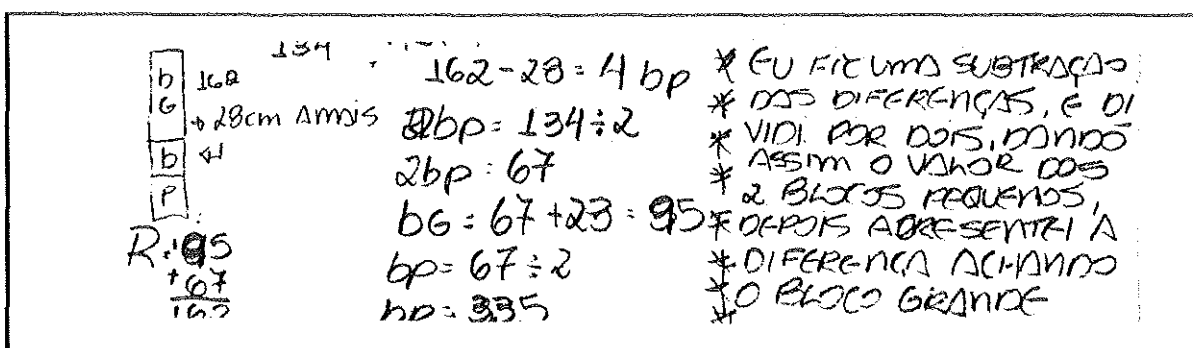 134
b 162
G
28cm AMAIS
b
P
R:95
+67
162
162-28=4bp
2bp=134÷2
2bp=67
bG=67+23=95
bp=67÷2
bp=335
* EU FIZ UMA SUBTRAÇÃO
* DAS DIFERENÇAS, E DI
* VIDI POR DOIS, DANDO
* ASSIM O VALOR DOS
* 2 BLOCOS PEQUENOS,
* DEPOIS APRESENTEI A
* DIFERENÇA ACHANDO
* O BLOCO GRANDE
*